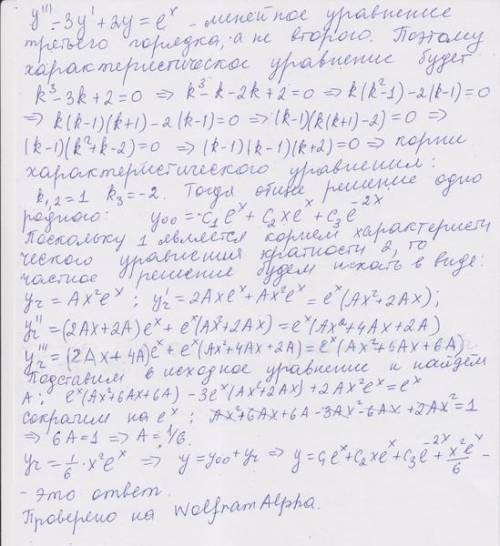 y''' - 3y' + 2y = e^x - линейное уравнение
третьего порядка, а не второго. Поэтому
характеристическое уравнение будет
k³ - 3k + 2 = 0 ⇒ k³ - k - 2k + 2 = 0 ⇒ k(k² - 1) - 2(k - 1) = 0
⇒ k(k-1)(k+1) - 2(k-1) = 0 ⇒ (k-1)(k(k+1) - 2) = 0 ⇒
(k-1)(k² + k - 2) = 0 ⇒ (k-1)(k-1)(k+2) = 0 ⇒ корни
характеристического уравнения:
k₁,₂ = 1 k₃ = -2. Тогда общее решение одно
родного: y₀₀ = C₁e^x + C₂xe^x + C₃e^-2x
Поскольку 1 является корнем характеристи
ческого уравнения кратности 2, то
частное решение будем искать в виде:
yᵣ = Ax²e^x ; yᵣ' = 2Axe^x + Ax²e^x = e^x(Ax² + 2Ax);
yᵣ'' = (2Ax + 2A)e^x + e^x(Ax² + 2Ax) = e^x(Ax² + 4Ax + 2A)
yᵣ''' = (2Ax + 4A)e^x + e^x(Ax² + 4Ax + 2A) = e^x(Ax² + 6Ax + 6A)
Подставим в исходное уравнение и найдём
A: e^x(Ax² + 6Ax + 6A) - 3e^x(Ax² + 2Ax) + 2Ax²e^x = e^x
Сократим на e^x ; Ax² + 6Ax + 6A - 3Ax² - 6Ax + 2Ax² = 1
⇒ 6A = 1 ⇒ A = 1/6.
yᵣ = 1/6 · x²e^x ⇒ y = y₀₀ + yᵣ ⇒ y = C₁e^x + C₂xe^x + C₃e^-2x + x²e^x/6 -
- это ответ.
Проверено на WolframAlpha.